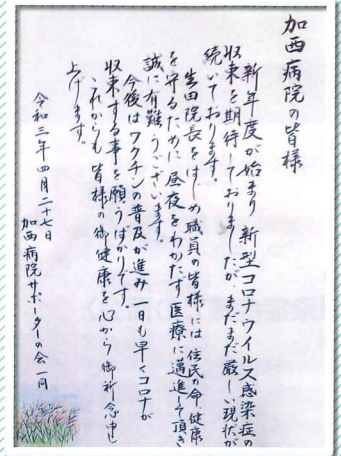 加西病院の皆様
新年度が始まり 新型コロナウイルス感染症の
収束を期待しておりましたが、まだまだ厳しい現状が
続いております。
生田院長をはじめ職員の皆様には 住民の命、健康
を守るために 昼夜をわかたず医療に邁進して頂き
誠に有難うございます。
今後はワクチンの普及が進み 一日も早くコロナが
収束する事を願うばかりです。
これからも 皆様の御健康を心から御祈念申し
上げます。
令和三年四月二十七日
加西病院サポーターの会一同